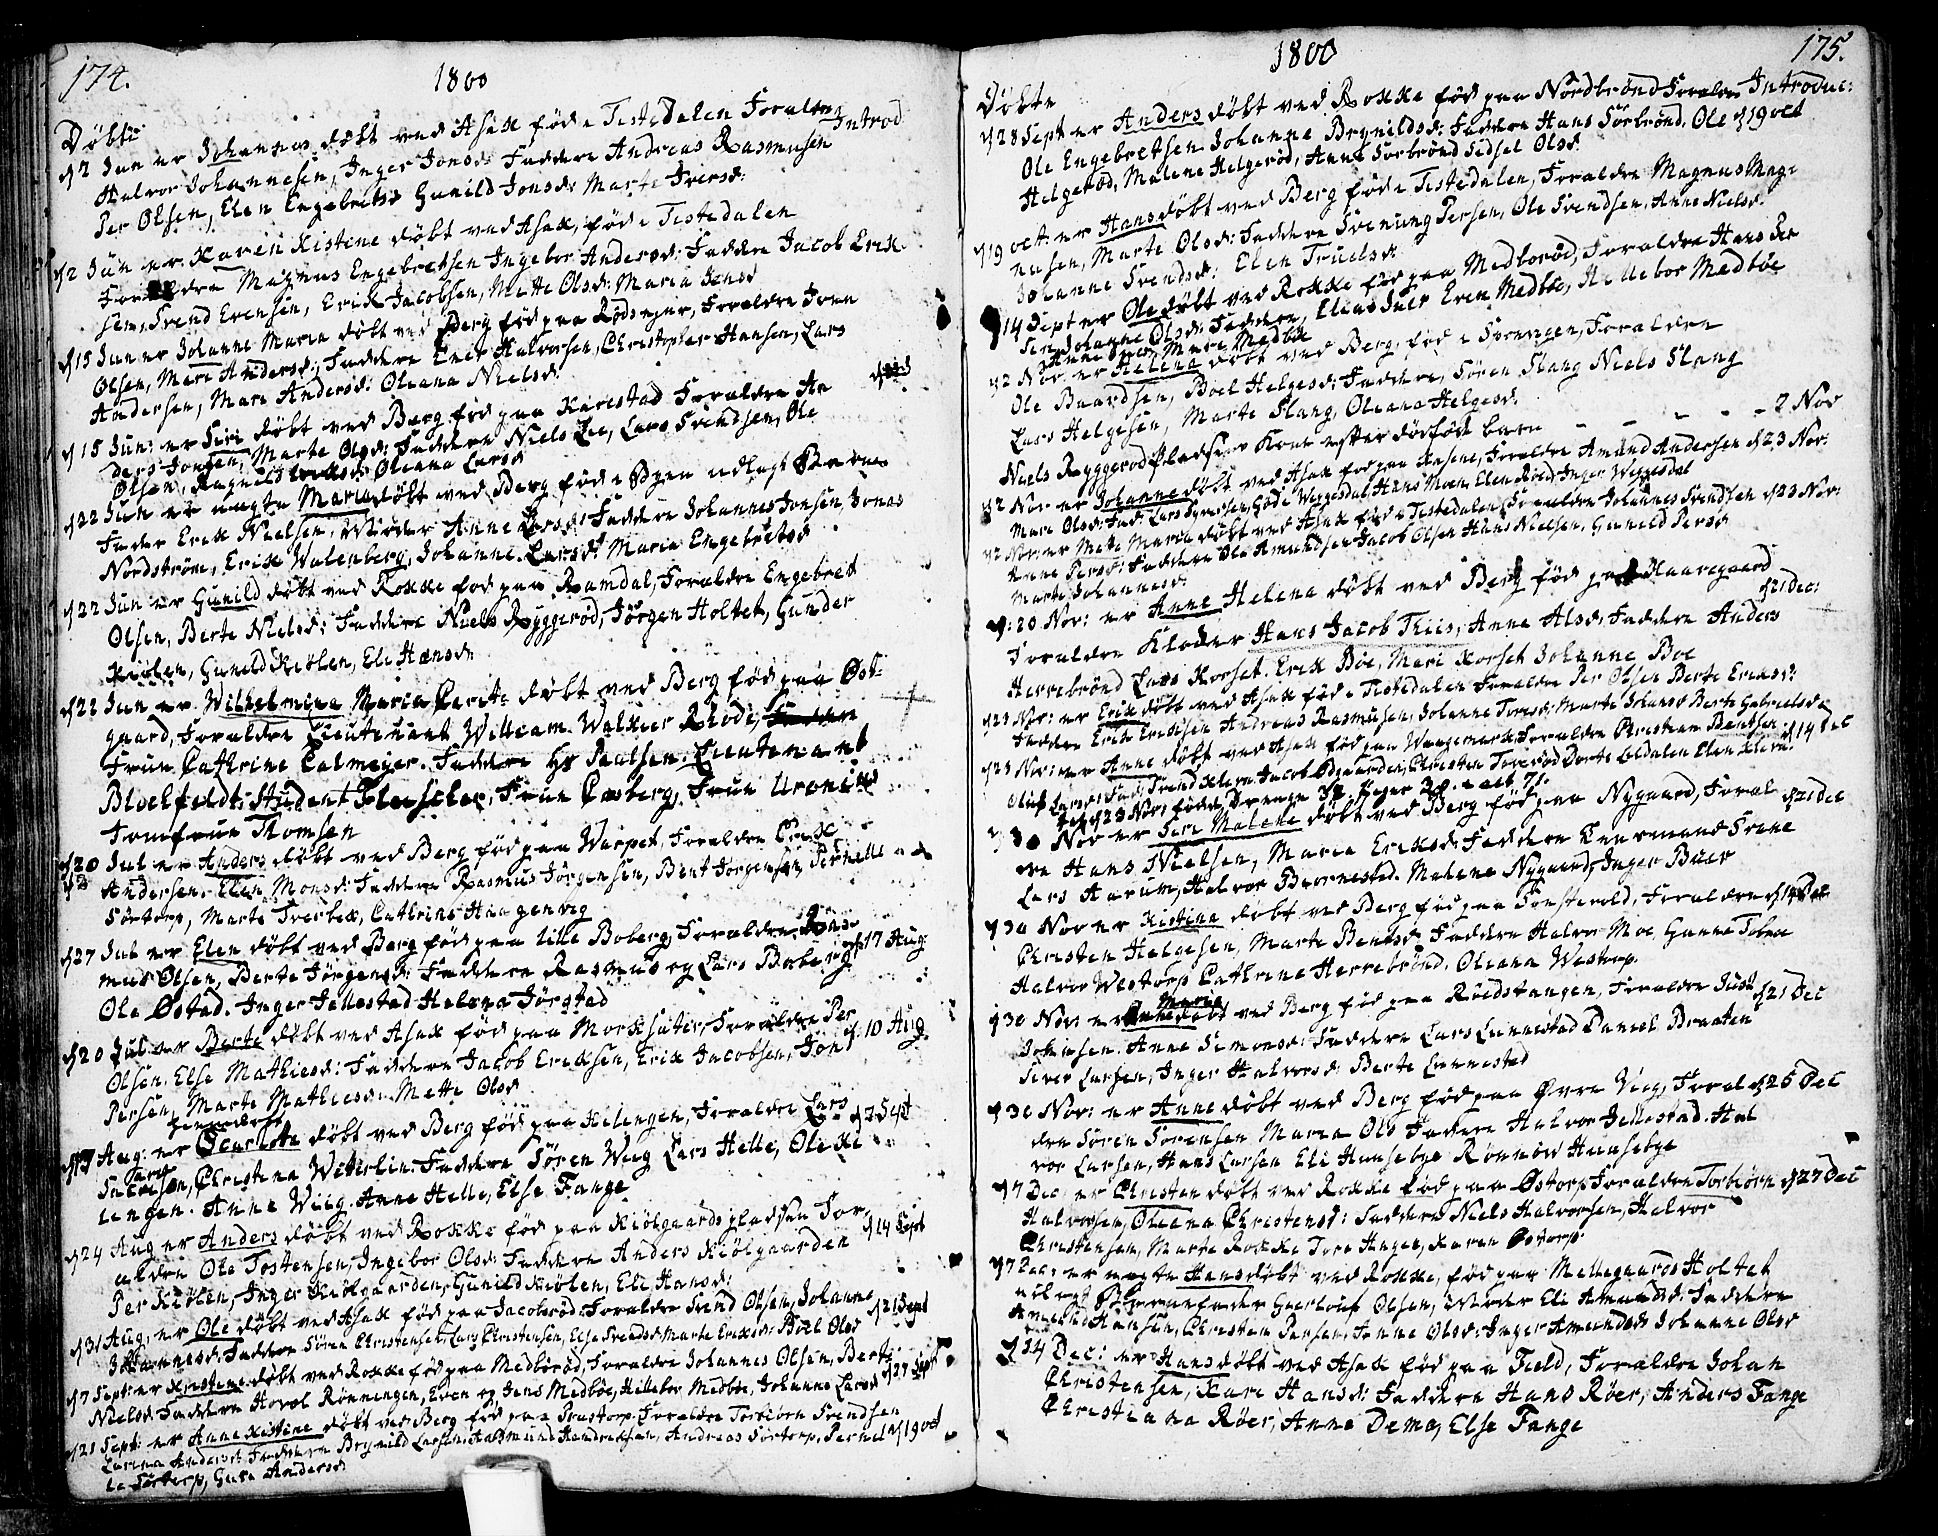 174.
1800
Döbte
Introd
d 2 Jun er Johannes döbt ved Asak föd i Testedalen Foraldre
Halvor Johannesen, Inger Jonsd: Faddere Andreas Rasmusen
Per Olsen, Elen Engebretsd Gunild Jonsd: Marte Iversd:
d 2 Jun er Karen Kistine döbt ved Asak, föd i Testedalen
Foraldre Magnus Engebretsen Ingebor Andersd: Faddere Jacob Erik
sen, Svend Evensen, Erik Jacobsen, Mette Olsd: Maria Jensd
d 15 Jun er Johanne Maria döbt ved Berg föd paa Rödseier, Foraldre Iven
Olsen, Mari Andersd: Faddere Ener Halvorsen, Christopher Hansen, Lars
Andersen, Mari Andersd: Oleana Nielsd:
d 15 Jun: er Siri döbt ved Berg föd paa Karestad Foraldre An
ders Jonsen, Marte Olsd: Faddere Niels Lie, Lars Svendsen, Ole
Olsen, Ragnild Eriksd: Oleana Larsd
d 22 Jun er uægte Maria döbt ved Berg föd i Byen udlagt Barne
Fader Erik Nielsen, Moder Anne Larsd: Faddere Johannes Jonsen, Jonas
Nordström, Erik Walenberg, Johanne Larsd: Maria Engebretsd
d 22 Jun er Gunild döbt ved Rokke föd paa Ramdal, Foraldre Engebret
Olsen, Berte Nielsd: Faddere Niels Ryggeröd, Jörgen Holtet, Gunder
Kiölen, Gunild Kiölen, Eli Hansd:
d 22 Jun er Wilhelmina Maria Cerite döbt ved Berg föd paa Øst-
gaard, Foraldre Lieutenant Willeam Walkier Rhode,
Frue Cathrine Calmeyer. Faddere Hr Paulsen, Lieutenant
Blochfeldt, Student Fleischer, Frue Carberg, Frue Uroni
Jomfrue Thomsen
d 20 Jul er Anders döbt ved Berg föd paa Warpet, Foraldre Erik
Andersen, Elen Monsd: Faddere Rasmus Jörgensen, Bent Jörgensen, Pernelle
Sörtorp, Marte Tverbek, Cathrine Haagenveg
d 27 Jul er Elen döbt ved Berg föd paa lille Boberg, Foraldre Ras-
mus Olsen, Berte Jörgensd: Faddere Rasmus og Lars Boeberg d 17 Aug
Ole Østad. Inger Jellestad Helena Jörstad
d 20 Jul er Berte döbt ved Asak föd paa Morksæter, Foraldre Per
Olsen. Else Mathiesd: Faddere Jacob Eriksen, Erik Jacobsen, Jon d: 10 Aug.
Persen, Marte Mathiesd: Mette Olsd
d 17 Aug: er Charlotte döbt ved Berg föd paa Kilengen, Foraldre Lars d 7 Sept
Christina Wetterlin. Faddere Sören Wiig Lars Helle, Ole Ki
lengen. Anne Wiig. Anne Helle, Else Fange
d 24 Aug er Anders döbt ved Rokke föd paa Kiölgaards pladsen For-
aldre Ole Tostensen, Ingebor Olsd: Faddere Anders Kiölgaarden d 14 Sept
Per Kiölen, Inger Kiölgaarden, Gunild Kiölen, Eli Hansd:
d 31 Aug: er Ole döbt ved Asak föd paa Jacobröd. Foraldre Svend Olsen, Johanne d 21 Sept
Johannesd: Faddere Sören Christensen, Lars Christensen, Else Svendsd: Marte Eriksd: Boel Olsd
d 7 Sept: er Kristene döbt ved Rokke föd paa Medböröd, Foraldre Johannes Olsen, Berte
Nielsd: Faddere Havol Rönningen, Even og Jens Medböe, Hillebor Medböe, Johanne Larsd d 27 Sept
d 21 Sept: er Anne Kistine döbt ved Berg föd paa Pinstorp. Foraldre Torbiörn Svendsen
Larina Andersd: Faddere Brynild Larsen, Amund Hendriksen, Andreas Sörtorp, Pernel d 19 oct
le Sörtorp, Guro Andersd
1800
175.
Döbte
Introduc:
d 28 Sept er Anders döbt ved Rokke föd paa Nordbrönd Foraldre
Ole Engebretsen Johanne Brynildsd: Faddere Hans Sörbrönd, Ole d 19 oct
Helgeröd, Malene Helgeröd, Anne Sörbrönd Sidsel Olsd:
d 19 oct: er Hans döbt ved Berg föd i Testedalen, Foraldre Magnus Mag-
nusen, Marte Olsd: Faddere Svenung Persen, Ole Svendsen, Anne Nielsd:
Johanne Svendsd: Elen Truelsd:
d 14 Sept er Ole döbt ved Rokke föd paa Medboröd, Foraldre Hans Per
sen, Johanne Olsd: Faddere, Elias Even Medböe, Hellebor Medböe
Anne Mari Medböe
d 2 Nov er Helena döbt ved Berg, föd i Svenngen, Foraldre
Ole Baardsen, Boel Helgesd: Faddere, Sören Stang Niels Stang
Lars Helgesen, Marte Stang, Oleana Helgesd:
Niels Ryggeröd pladsens Kone efter dödfödt barn - - - - 2 Nov
d 2 Nov er Johanne döbt ved Asak föd paa Ansene, Foraldre Amund Andersen d 23 Nov:
Mari Olsd: Fad: Lars Gundersen, Gude Weggesdal, Hans Moen Elen Röed, Inger Weggesdal
d 2 Nov: er Mette Maria döbt ved Asak föd i Testedalen, Foraldre Johannes Svendsen d 23 Nov:
Anne Persd: Faddere Ole Amundsen Jacob Olsen Hans Nielsen, Gunild Persd
Marte Johannesd:
d: 20 Nov: er Anne Helena döbt ved Berg föd paa Haaregaard d 21 Dec:
Foraldre Klocker Hans Jacob Thiis, Anne Alsd: Faddere Anders
Herrebrönd Lars Korset. Erik Böe, Mari Korset Johanne Boe
d 23 Nov: er Erik döbt ved Asak föd i Testedalen Foraldre Per Olsen Berte Eriksd:
Faddere Erik Eriksen Andreas Rasmusen, Johanne Toresd: Marte Johansd Berte Gabrielsd
d 23 Nov: er Anne döbt ved Asak föd paa Waagemark Foraldre Christian Bentsen d 14 Dec
Oluf Larsd: Fad: Svend Klerna Jacob Ødgaarden, Christen Toreröd Dorte Lisedalen Elen Klerna
Til d 23 Nov: födte Drenge 32. Piger 39. = alt 71.
d 30 Nov er Siri Malene döbt ved Berg föd paa Nygaard, Foral d 21 Dec
dre Hans Nielsen, Maria Eriksd: Faddere Lensmand Frene
Lars Aarum, Halvor Biornestad. Malene Nygaard, Inger Buer
d 30 Nov er Kistina döbt ved Berg föd paa Tonstevold, Foraldre d 14 Dec
Christen Helgesen, Marte Bentsd: Faddere Halvor Moe Gunne Toben
Halvor Westorp Cathrina Herrebrönd, Oleana Westorp.
d 30 Nov: er Anne Maria döbt ved Berg föd paa Röedstangen, Foraldre Just d 21 Dec
Johansen. Anne Simonsd: Faddere Lars Lunnestad Daniel Braaten
Siver Larsen, Inger Halvorsd: Berte Lunnestad
d 30 Nov: er Anne döbt ved Berg föd paa Øvre Viig, Foral d 26 Dec
dre Sören Sörensen Maria Olsd Faddere Halvor Jellestad. Hal
vor Larsen, Hans Larsen Eli Huusebye Rönnow Huusebye
d 7 Dec: er Christen döbt ved Rokke föd paa Østorp Foraldre Torbiörn d 27 Dec
Halvorsen, Oleana Christensd: Faddere Niels Halvorsen, Halvor
Christensen, Marte Rokke Tore Anger, Karen Østorp
d 7 Dec: er uægte Hans döbt ved Rokke, föd paa Mellegaards Holtet
udlagt Barnefader Guerlouf Olsen, Moder Eli Amundsd: Faddere
Amund Hansen, Christen Persen, Anne Olsd: Inger Amundsd: Johanne Olsd
d 14 Dec: er Hans döbt ved Asak föd paa Field, Foraldre Johan
Christensen, Kari Hansd: Faddere Hans Röer, Anders Fange
Christiana Röer, Anne Dema, Else Fange